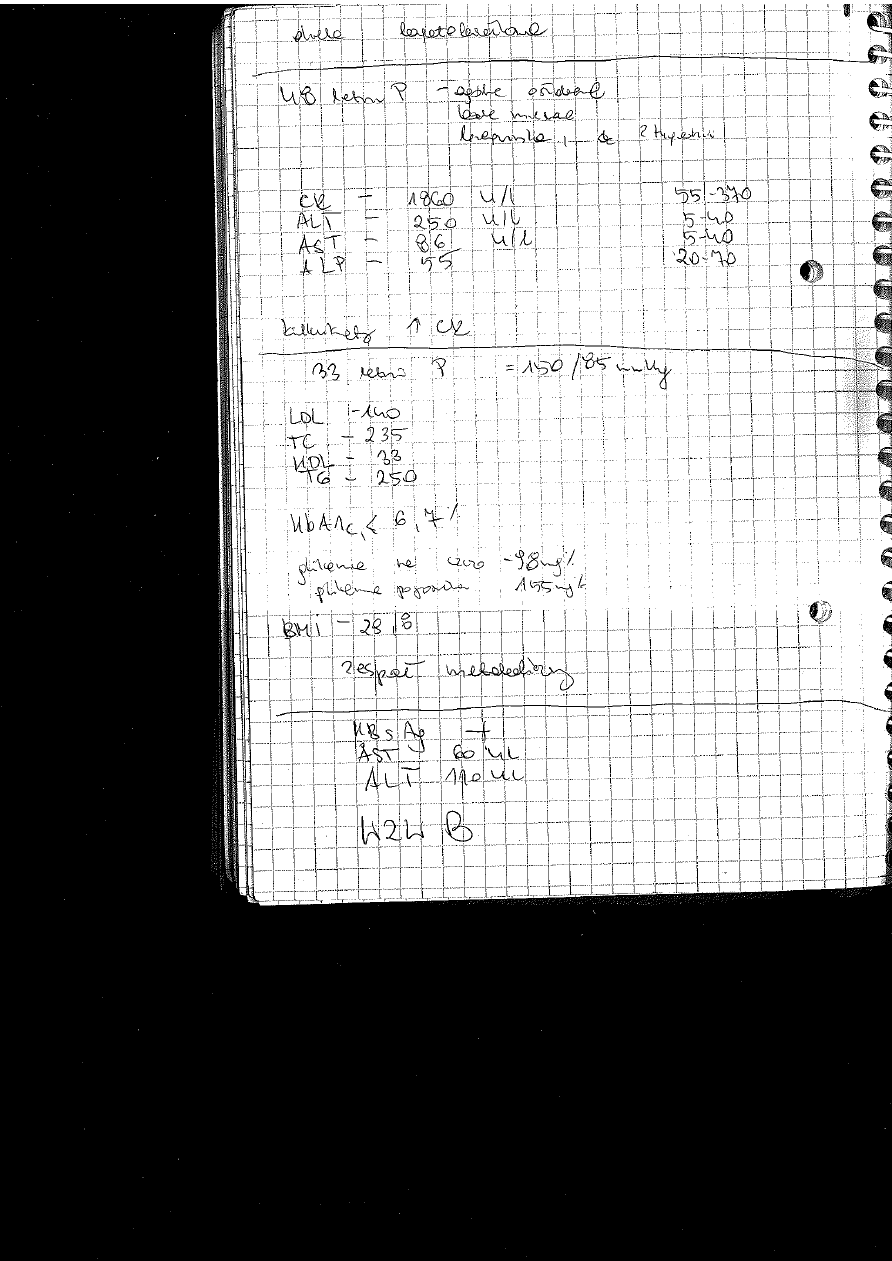 48 letni P - ogólne osłabienie
bóle mięśni
2 tygodni
CK - 1860 U/l 55-370
ALT - 250 U/l 5-40
AST - 86 U/l 5-40
ALP - 55 20-70
↑ CK
33 letni P = 150/85 mmHg
LDL - 140
TC - 235
HDL - 33
TG - 250
HbA1c < 6,7%
glikemia na czczo - 98 mg%
glikemia 155 mg%
BMI - 29,8
zespół metaboliczny
HBsAg +
AST 60 U/L
ALT 110 U/L
WZW B